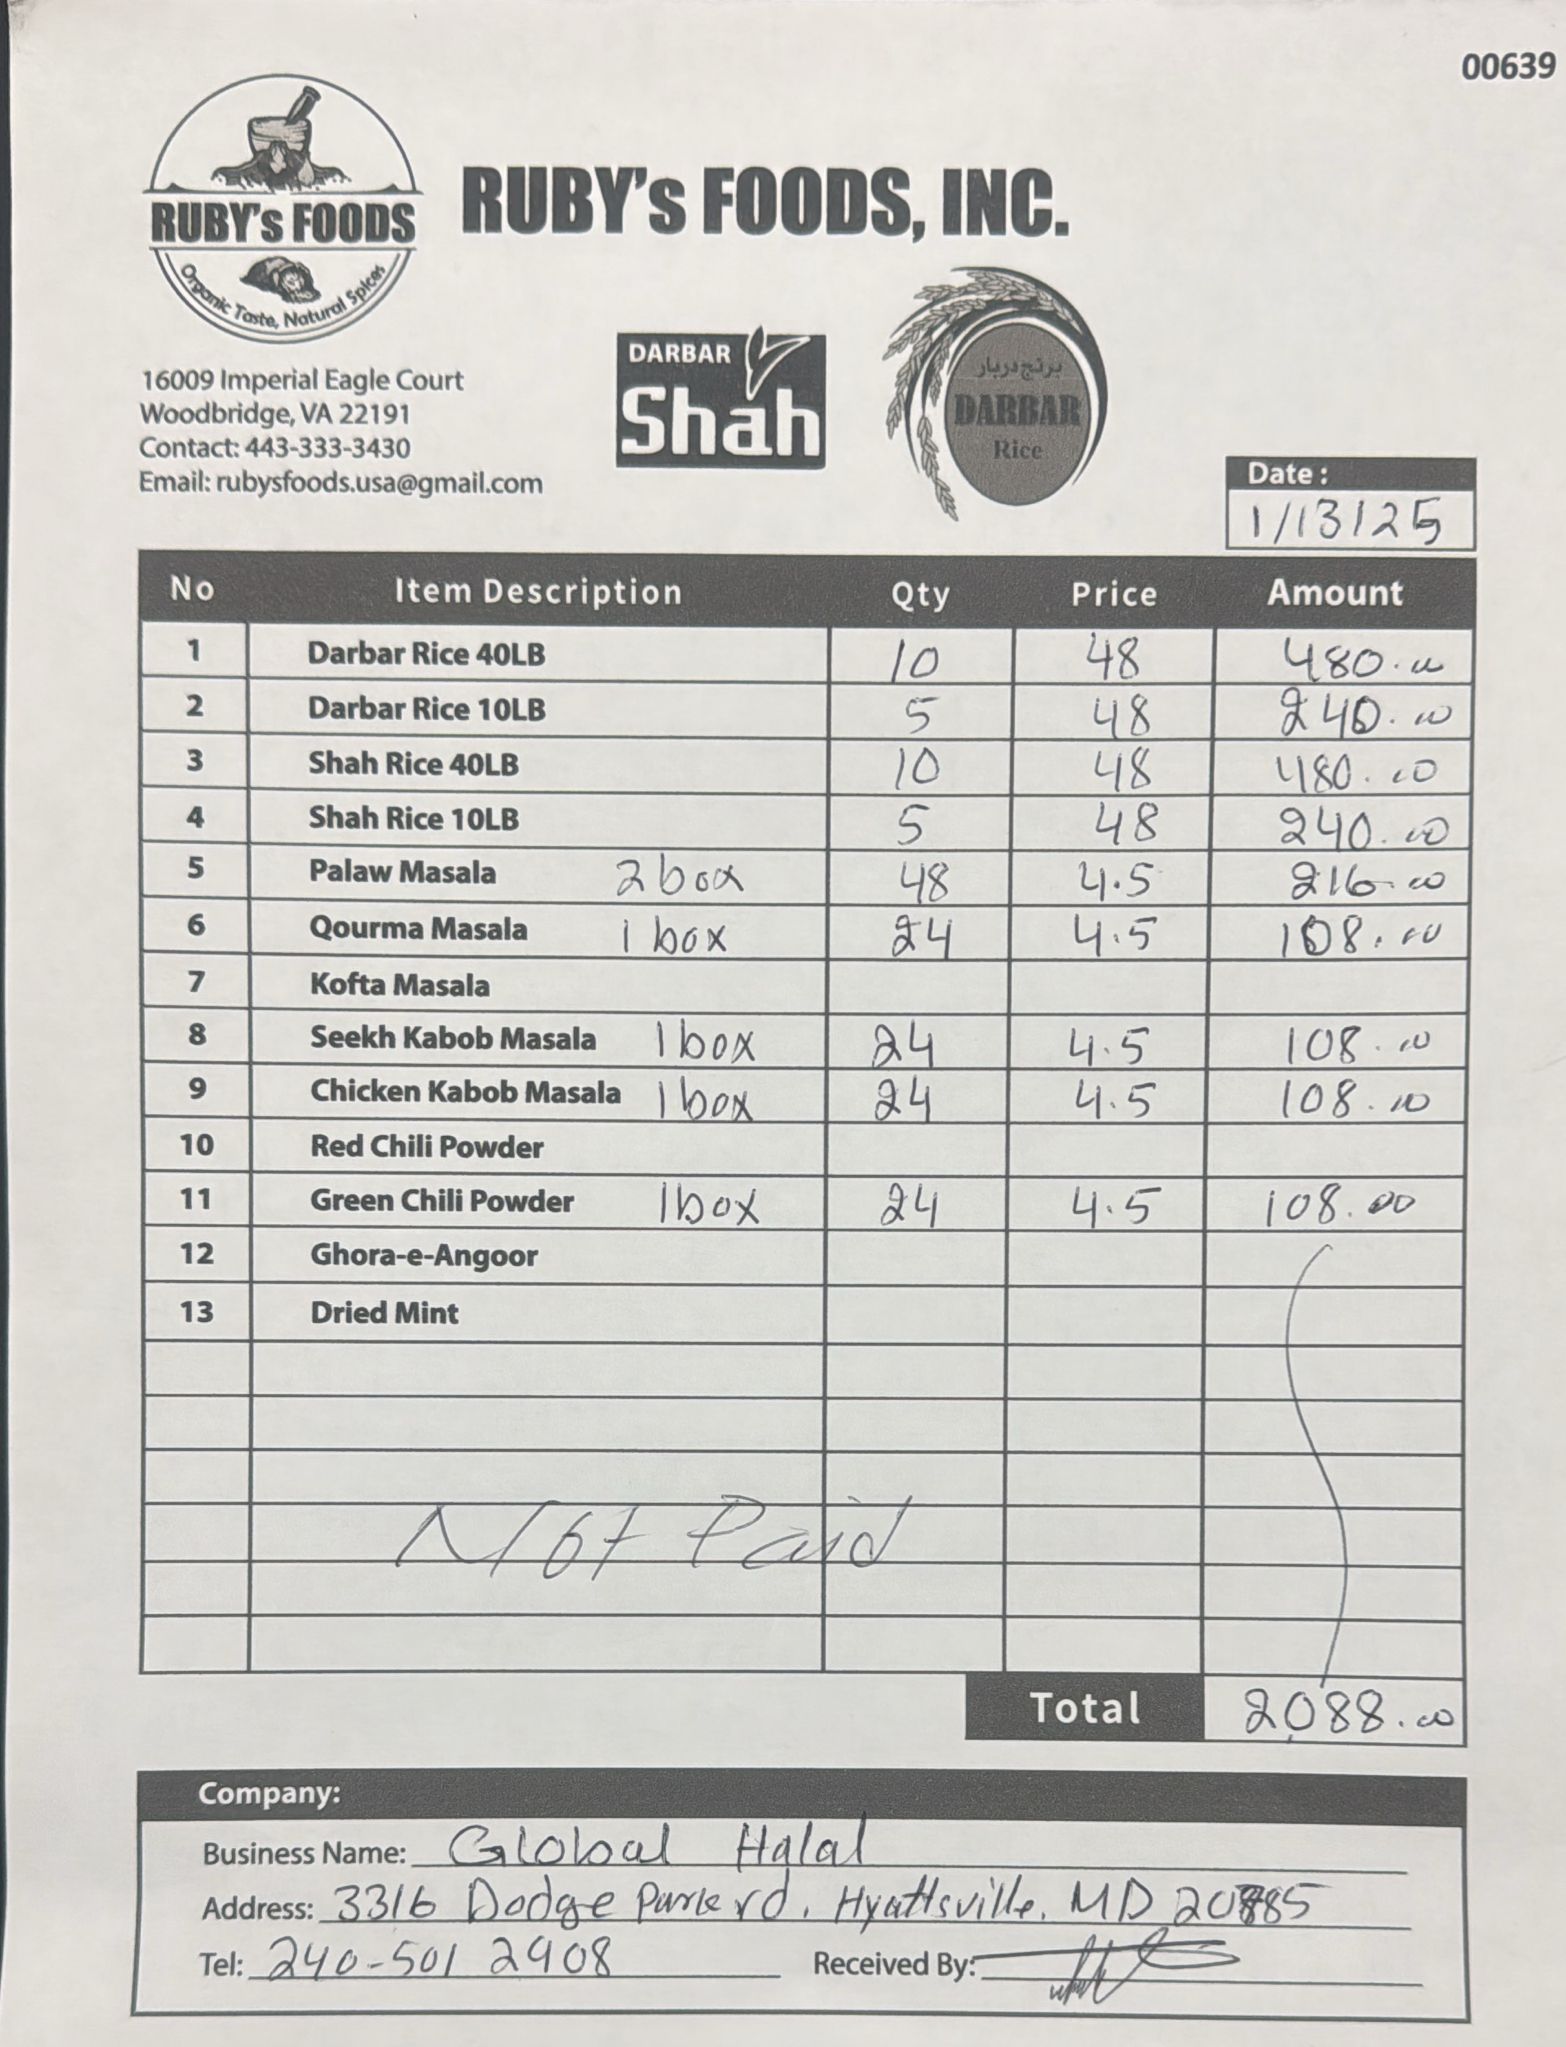 00639
RUBY's FOODS
Organic Taste, Natural Spices
RUBY's FOODS, INC.
DARBAR
Shah
برنج دربار
DARBAR
Rice
16009 Imperial Eagle Court
Woodbridge, VA 22191
Contact: 443-333-3430
Email: rubysfoods.usa@gmail.com
Date :
1/13/25
No Item Description Qty Price Amount
1 Darbar Rice 40LB 10 48 480.00
2 Darbar Rice 10LB 5 48 240.00
3 Shah Rice 40LB 10 48 480.00
4 Shah Rice 10LB 5 48 240.00
5 Palaw Masala 2 box 48 4.5 216.00
6 Qourma Masala 1 box 24 4.5 108.00
7 Kofta Masala
8 Seekh Kabob Masala 1 box 24 4.5 108.00
9 Chicken Kabob Masala 1 box 24 4.5 108.00
10 Red Chili Powder
11 Green Chili Powder 1 box 24 4.5 108.00
12 Ghora-e-Angoor
13 Dried Mint
Not Paid
Total 2088.00
Company:
Business Name: Global Halal
Address: 3316 Dodge Park rd. Hyattsville. MD
Tel: 240-501 2908 Received By: